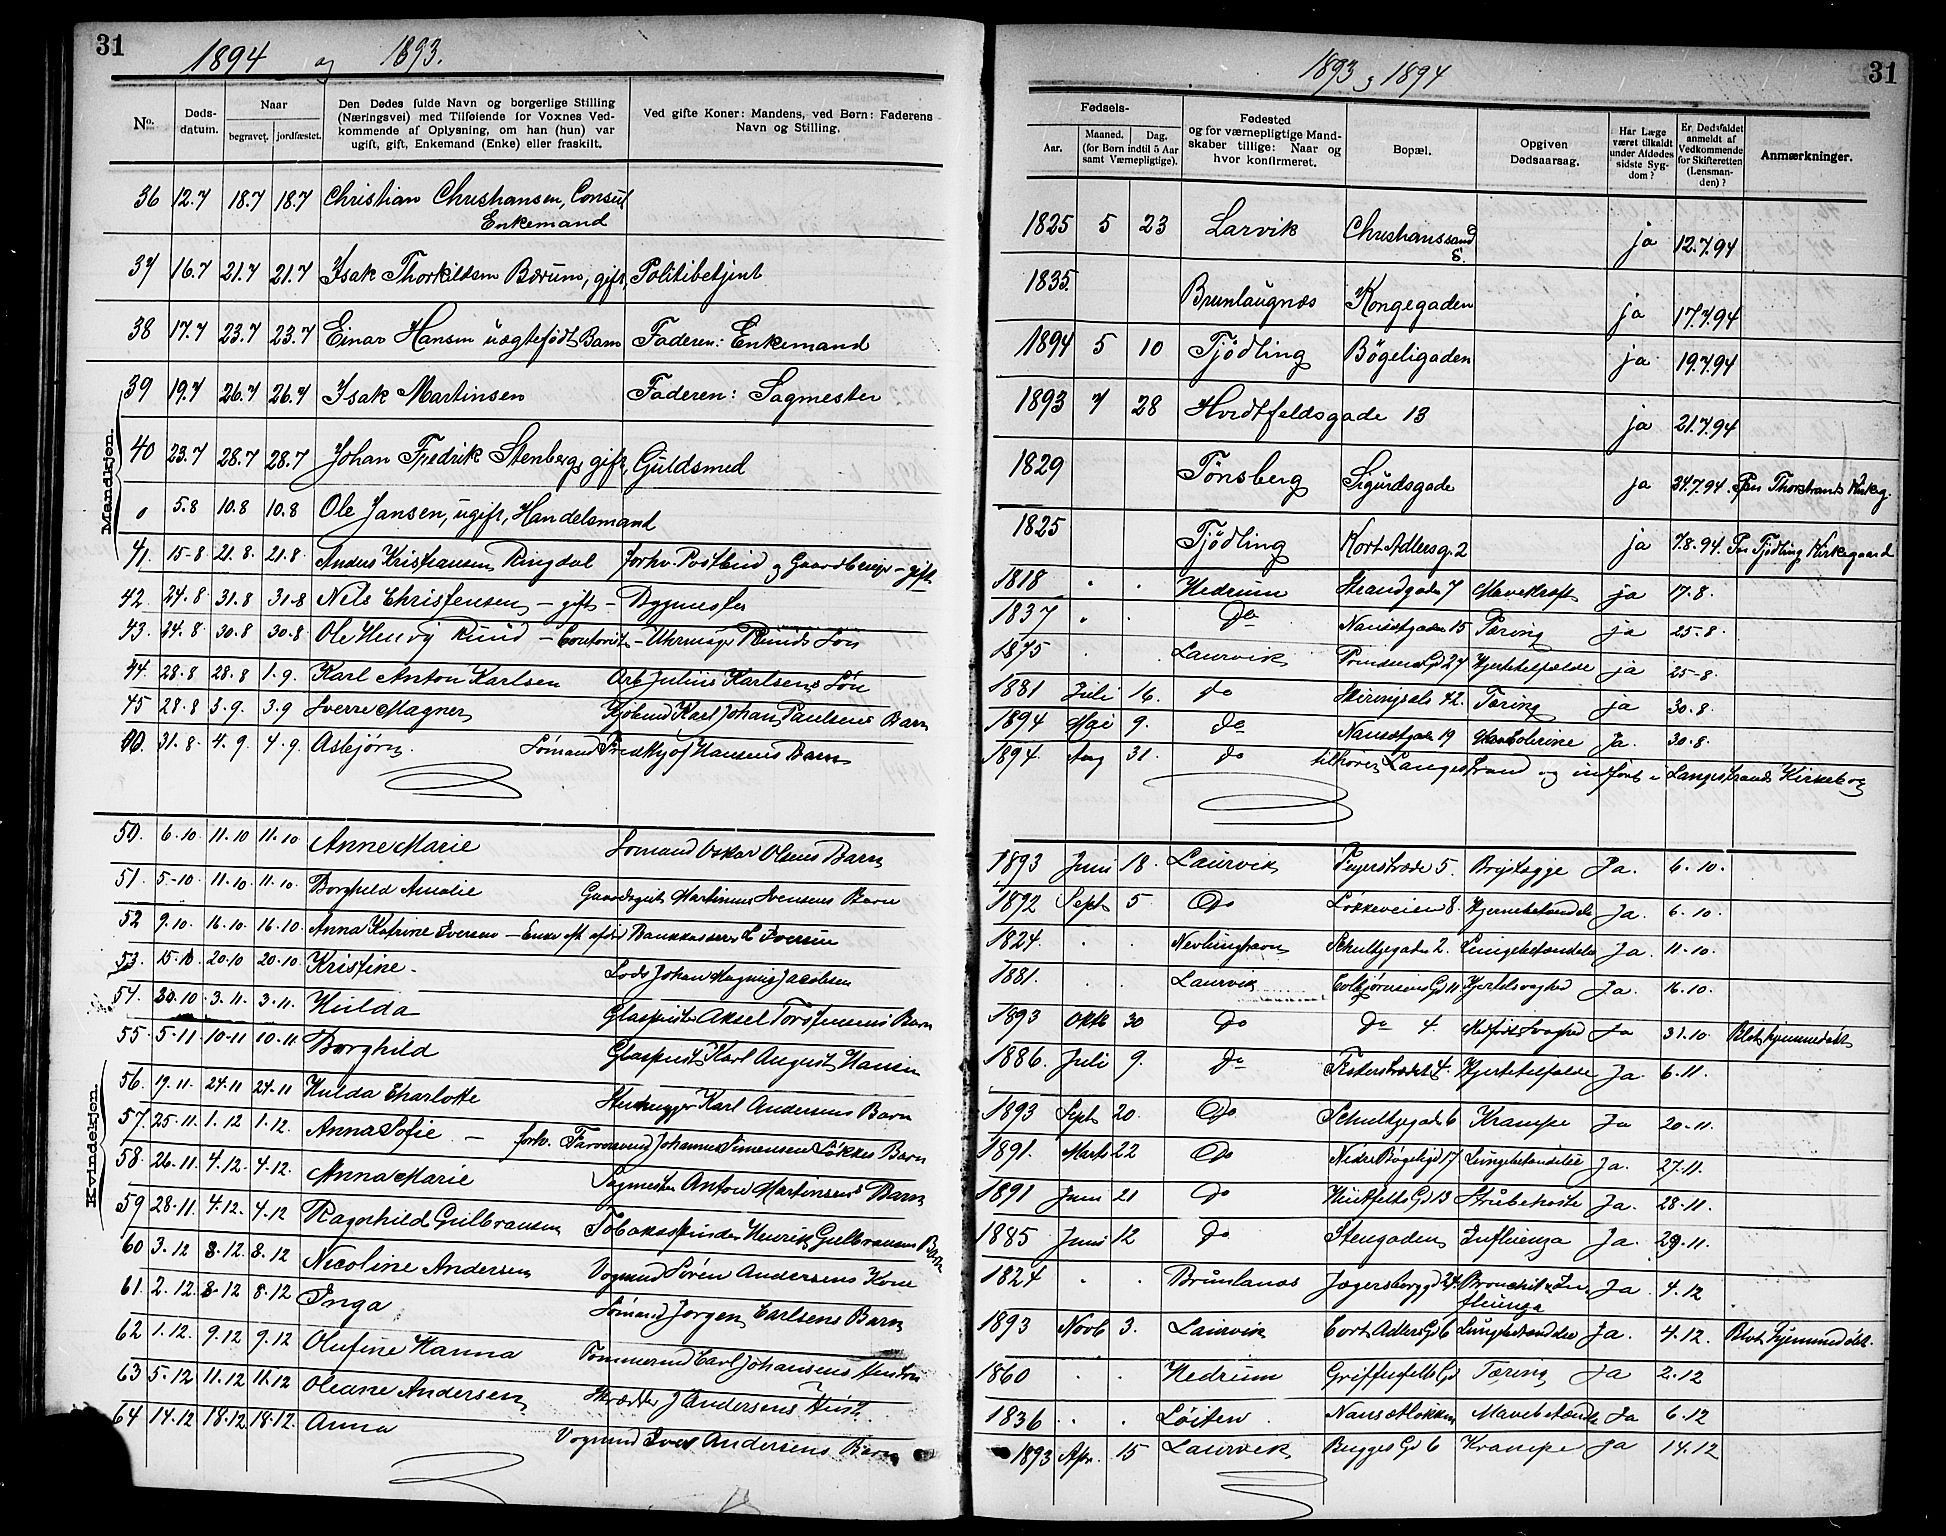 31
1894 og 1893.
No.
Døds-datum.
Naar
begravet. jordfæstet.
Den Dødes fulde Navn og borgerlige Stilling (Næringsvei) med Tilføiende for Voxnes Vedkommende af Oplysning, om han (hun) var ugift, gift, Enkemand (Enke) eller fraskilt.
Ved gifte Koner: Mandens, ved Børn: Faderens Navn og Stilling.
Mandkjøn.
36 12.7 18.7 18.7 Christian Christiansen, Consul
Enkemand
37 16.7 21.7 21.7 Isak Thorkildsen Bærum, gift, Politibetjent
38 17.7 23.7 23.7 Einar Hansen uægtefødt Barn Faderen: Enkemand
39 19.7 26.7 26.7 Isak Martinsen Faderen: Sagmester
40 23.7 28.7 28.7 Johan Fredrik Stenberg, gift, Guldsmed
0 5.8 10.8 10.8 Ole Jansen, ugift, Handelsmand
41. 15-8 21.8. 21.8. Anders Kristiansen Ringdal forhv. Postbud og Gaardbruger - gift
42. 24.8 31.8 31.8 Nils Christensen - gift - Bygmester
43. 24.8 30.8 30.8. Ole Henry Ruud - - Uhrmager Ruuds Søn
44. 28.8 28.8 1.9. Karl Anton Karlsen Arb Julius Karlsens Søn
45 28.8 3.9. 3.9 Sverre Magner Karl Johan Paulsens Barn
31.8. 4.9. 4.9. Asbjørn. Sømand Fredthjof Hansens Barn
Kvindekjøn.
50. 6.10 11.10 11.10 Anne Marie Sømand Oskar Olsens Barn
51. 5.10 11.10 11.10. Borghild Amalie Gaardsgut Martinius Svensens Barn
52 9.10 16.10 16.10 Anna Katrine Iversen - Enke eft. Bankkasserer Iversen
53. 15.10 20.10 20.10 Kristine. Lods Johan Magnus Jacobsen
54. 30.10 3.11. 3.11. Hulda Aksel Torstensens Barn
55. 5.11 10.11 10.11 Borghild Karl August Hansen
56. 19.11. 24.11 24.11 Hulda Charlotte Stenhugger Karl Andersens Barn
57. 25.11 1.12 1.12. Anna Sofie. - forh. Johannes Simensen Løkkes Barn
58. 26.11 4.12. 4.12. Anna Marie Sagmester Anton Martinsens Barn
59 28.11 4.12. 4.12 Ragnhild Gulbransen Tobaksspinder Henrik Gulbransens Barn
60 3.12 8.12. 8.12 Nicoline Andersen Vognmd Søren Andersens Kone
61. 2.12. 8.12 8.12 Inga Sømand Jørgen Carlsens Barn
62 1.12. 9.12 9.12 Olufine Hanna Tømmermd Carl Johansens Hustru
63 5.12 11.12 11.12 Oleane Andersen Skrædder J Andersens Hust.
64 14.12 18.12 18.12. Anna Vognmd Andersens Barn

31
1893 og 1894
Fødsels-
Aar.
Maaned. Dag.
(for Børn indtil 5 Aar samt Værnepligtige).
Fødested
og for værnepligtige Mandskaber tillige: Naar og hvor konfirmeret.
Bopæl.
Opgiven Dødsaarsag.
Har Læge været tilkaldt under Afdødes sidste Sygdom?
Er Dødsfaldet anmeldt af Vedkommende for Skifteretten (Lensmanden)?
Anmærkninger.
1825 5 23 Larvik Christianssand S. ja 12.7.94
1835. Brunlaugnæs Kongegaden ja 17.7.94
1894 5 10 Tjødling Bøgeligaden ja 19.7.94
1893 7 28 Hvidtfeldsgade 13 ja 21.7.94
1829 Tønsberg Sigurdsgade ja 24.7.94. Paa Thorstrands Kirkeg.
1825 Tjødling Kort Adlersg. 2 ja 7.8.94. Paa Tjødling Kirkegaard
1818 Hedrum Strandgaden 7 Mavekræft ja 17.8.
1837 Do Nansetgaden 15 Tæring ja 25.8.
1875 Laurvik Gd 27 Hjertetilfælde ja 25.8
1881 Juli 16. do Skiringssals 42. Tæring ja 30.8.
1894 Mai 9. do Nansetgaden 19 Kolerine Ja. 30.8.
1894. Aug 31. do tilhører Langestrand og indført i Langestrands Kirkebog
1893 Juni 18. Laurvik Peyerstræde 5. Brystsyge Ja. 6.10.
1892 Sept 5 Do Løkkeveien 8. Hjernebetændelse Ja. 6.10.
1824. Nevlunghavn Schultzegaden 2. Lungebetændelse Ja 11.10.
1881. Laurvik Colbjørnsens Gd 11. Hjertesvaghed Ja. 16.10.
1893 Oktb 30 Do do 4. Medfødt Svaghed Ja 31.10. Blot hjemmedøbt
1886. Juli 9. do Festerstrædet 4. Hjertetilfælde Ja 6.11.
1893 Sept 20. Do Schultzegaden 6 Krampe Ja 20.11.
1891. Marts 22 Do Nedre Bøgeligd 17 Lungebetændelse Ja. 27.11.
1891 Juni 21 do Huitfelts Gd 13 Strubehoste Ja. 28.11.
1885 Juni 12 do Stengaden Influenza Ja. 29.11.
1824 Brunlanæs Jægersborggd 24. Bronchit & Influenza Ja. 4.12
1893 Novb 3. Laurvik Cort Adlers Gd 6 Lungebetændelse Ja. 4.12. Blot Hjemmedøbt.
1860 Hedrum Griffenfelts Gd Tæring Ja 2.12
1836 Løiten Nansetløkken Mavebetænd. Ja 6.12
1893 Apr. 15 Laurvik Bugges Gd 6 Krampe Ja 14.12